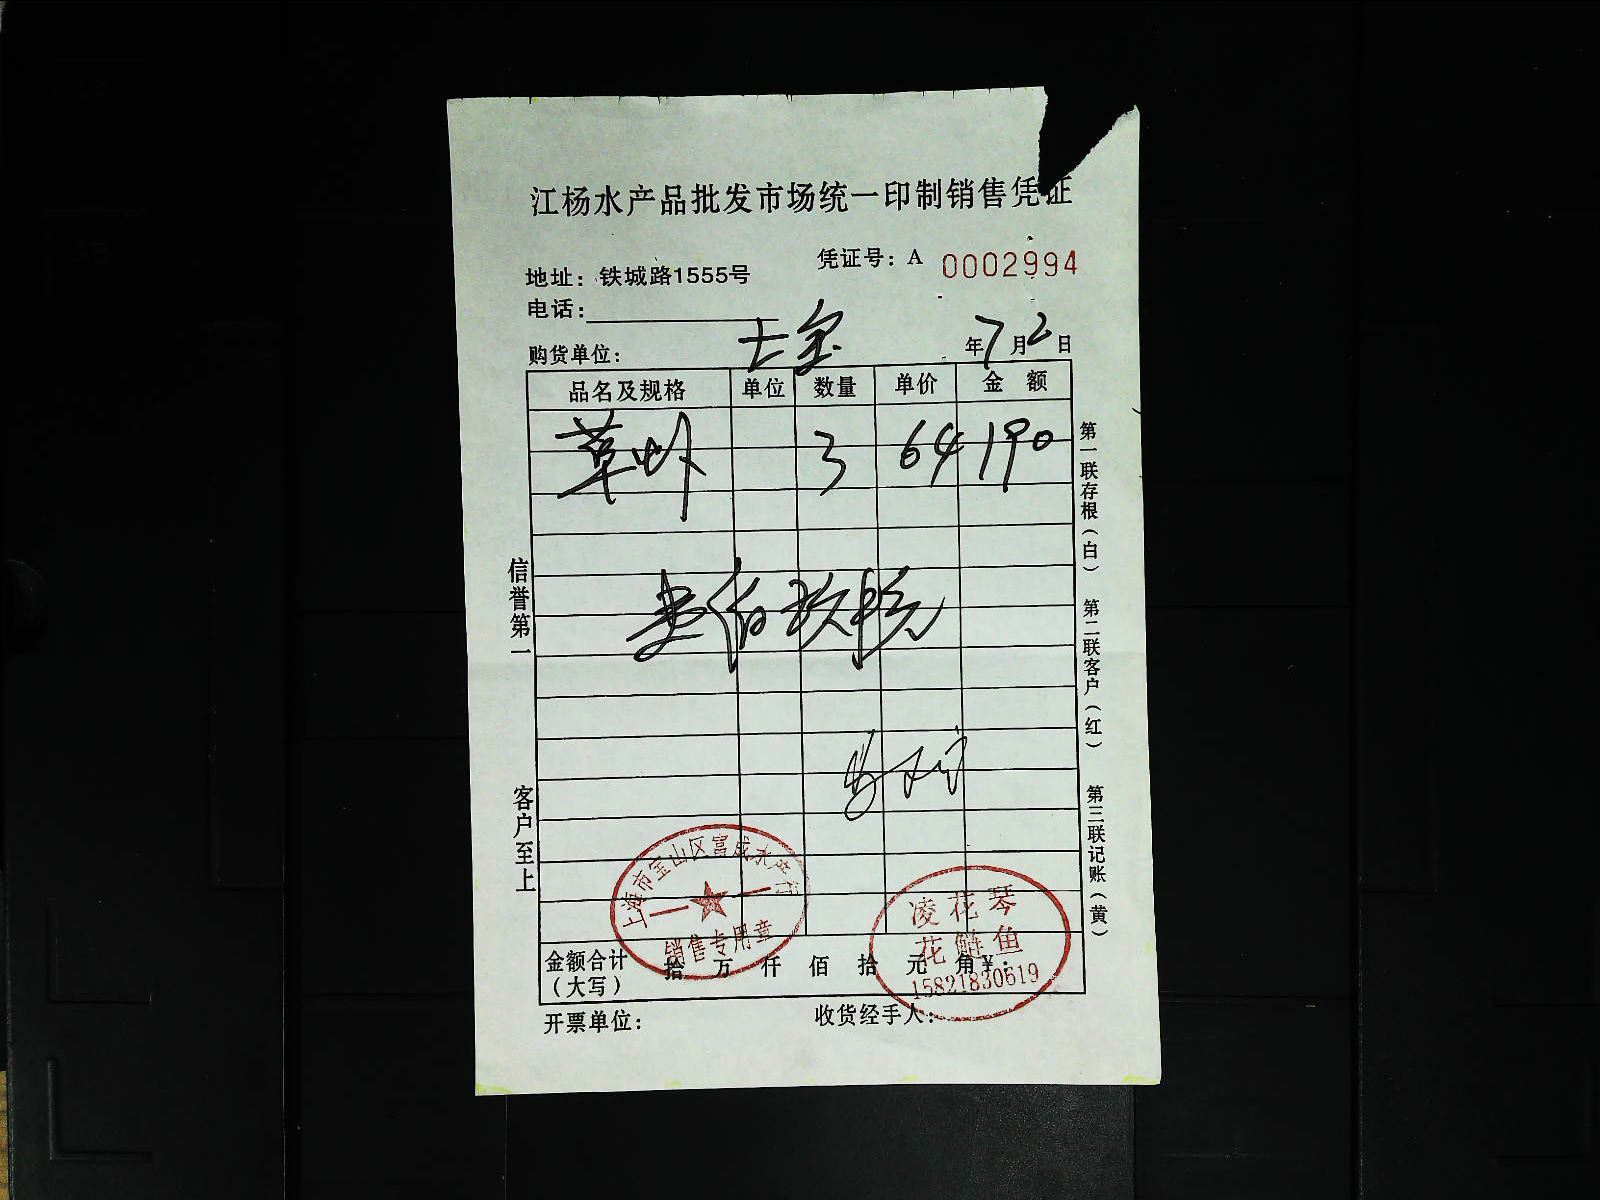 江杨水产品批发市场统一印制销售凭证
凭证号：A 0002994
地址：铁城路1555号
电话：
购货单位： 七宝 年7月2日
品名及规格 单位 数量 单价 金 额
草虾 3 64 190
壹佰玖拾元
信誉第一
客户至上
第一联存根（白）
第二联客户（红）
第三联记账（黄）
上海市宝山区富成水产行
销售专用章
凌花琴
花鲢鱼
15821830619
金额合计（大写） 拾 万 仟 佰 拾 元 角 ¥：
开票单位： 收货经手人：